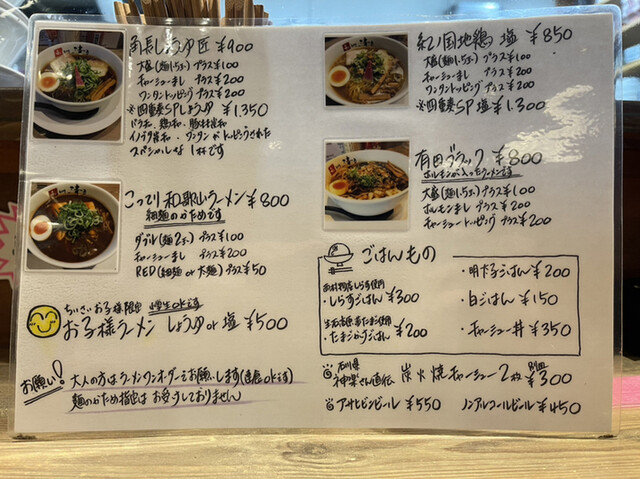 角長しょうゆ匠 ¥900
大盛(麺1.5玉) プラス¥100
チャーシューまし プラス¥200
ワンタントッピング プラス¥200
※四重奏SPしょうゆ ¥1,350
バラ肉、鶏肉、豚
イノブタ肉、ワンタンがトッピングされた
スペシャルな1杯です
こってり和歌山ラーメン¥800
細麺のかためです
ダブル(麺2玉) プラス¥100
チャーシューまし プラス¥200
RED(細麺 or 太麺) プラス¥50
ちいさいお子様限定
お子様ラーメン しょうゆ or 塩 ¥500
お願い!
大人の方はラーメンワンオーダーをお願いします
麺のかため指定は お受けしておりません
紀ノ国地鶏 塩 ¥850
大盛(麺1.5玉) プラス¥100
チャーシューまし プラス¥200
ワンタントッピング プラス¥200
※四重奏SP塩 ¥1,300
有田ブラック ¥800
ホルモンが入ったラーメンです
大盛(麺1.5玉) プラス¥100
ホルモンまし プラス¥200
チャーシュートッピング プラス¥200
ごはんもの
しらす使用
・しらすごはん ¥300
たまご使用
・たまごかけごはん ¥200
・明太ごはん ¥200
・白ごはん ¥150
・チャーシュー丼 ¥350
石川県
神楽さん直伝 炭火焼チャーシュー2枚 ¥300
アサヒビンビール ¥550 ノンアルコールビール ¥450